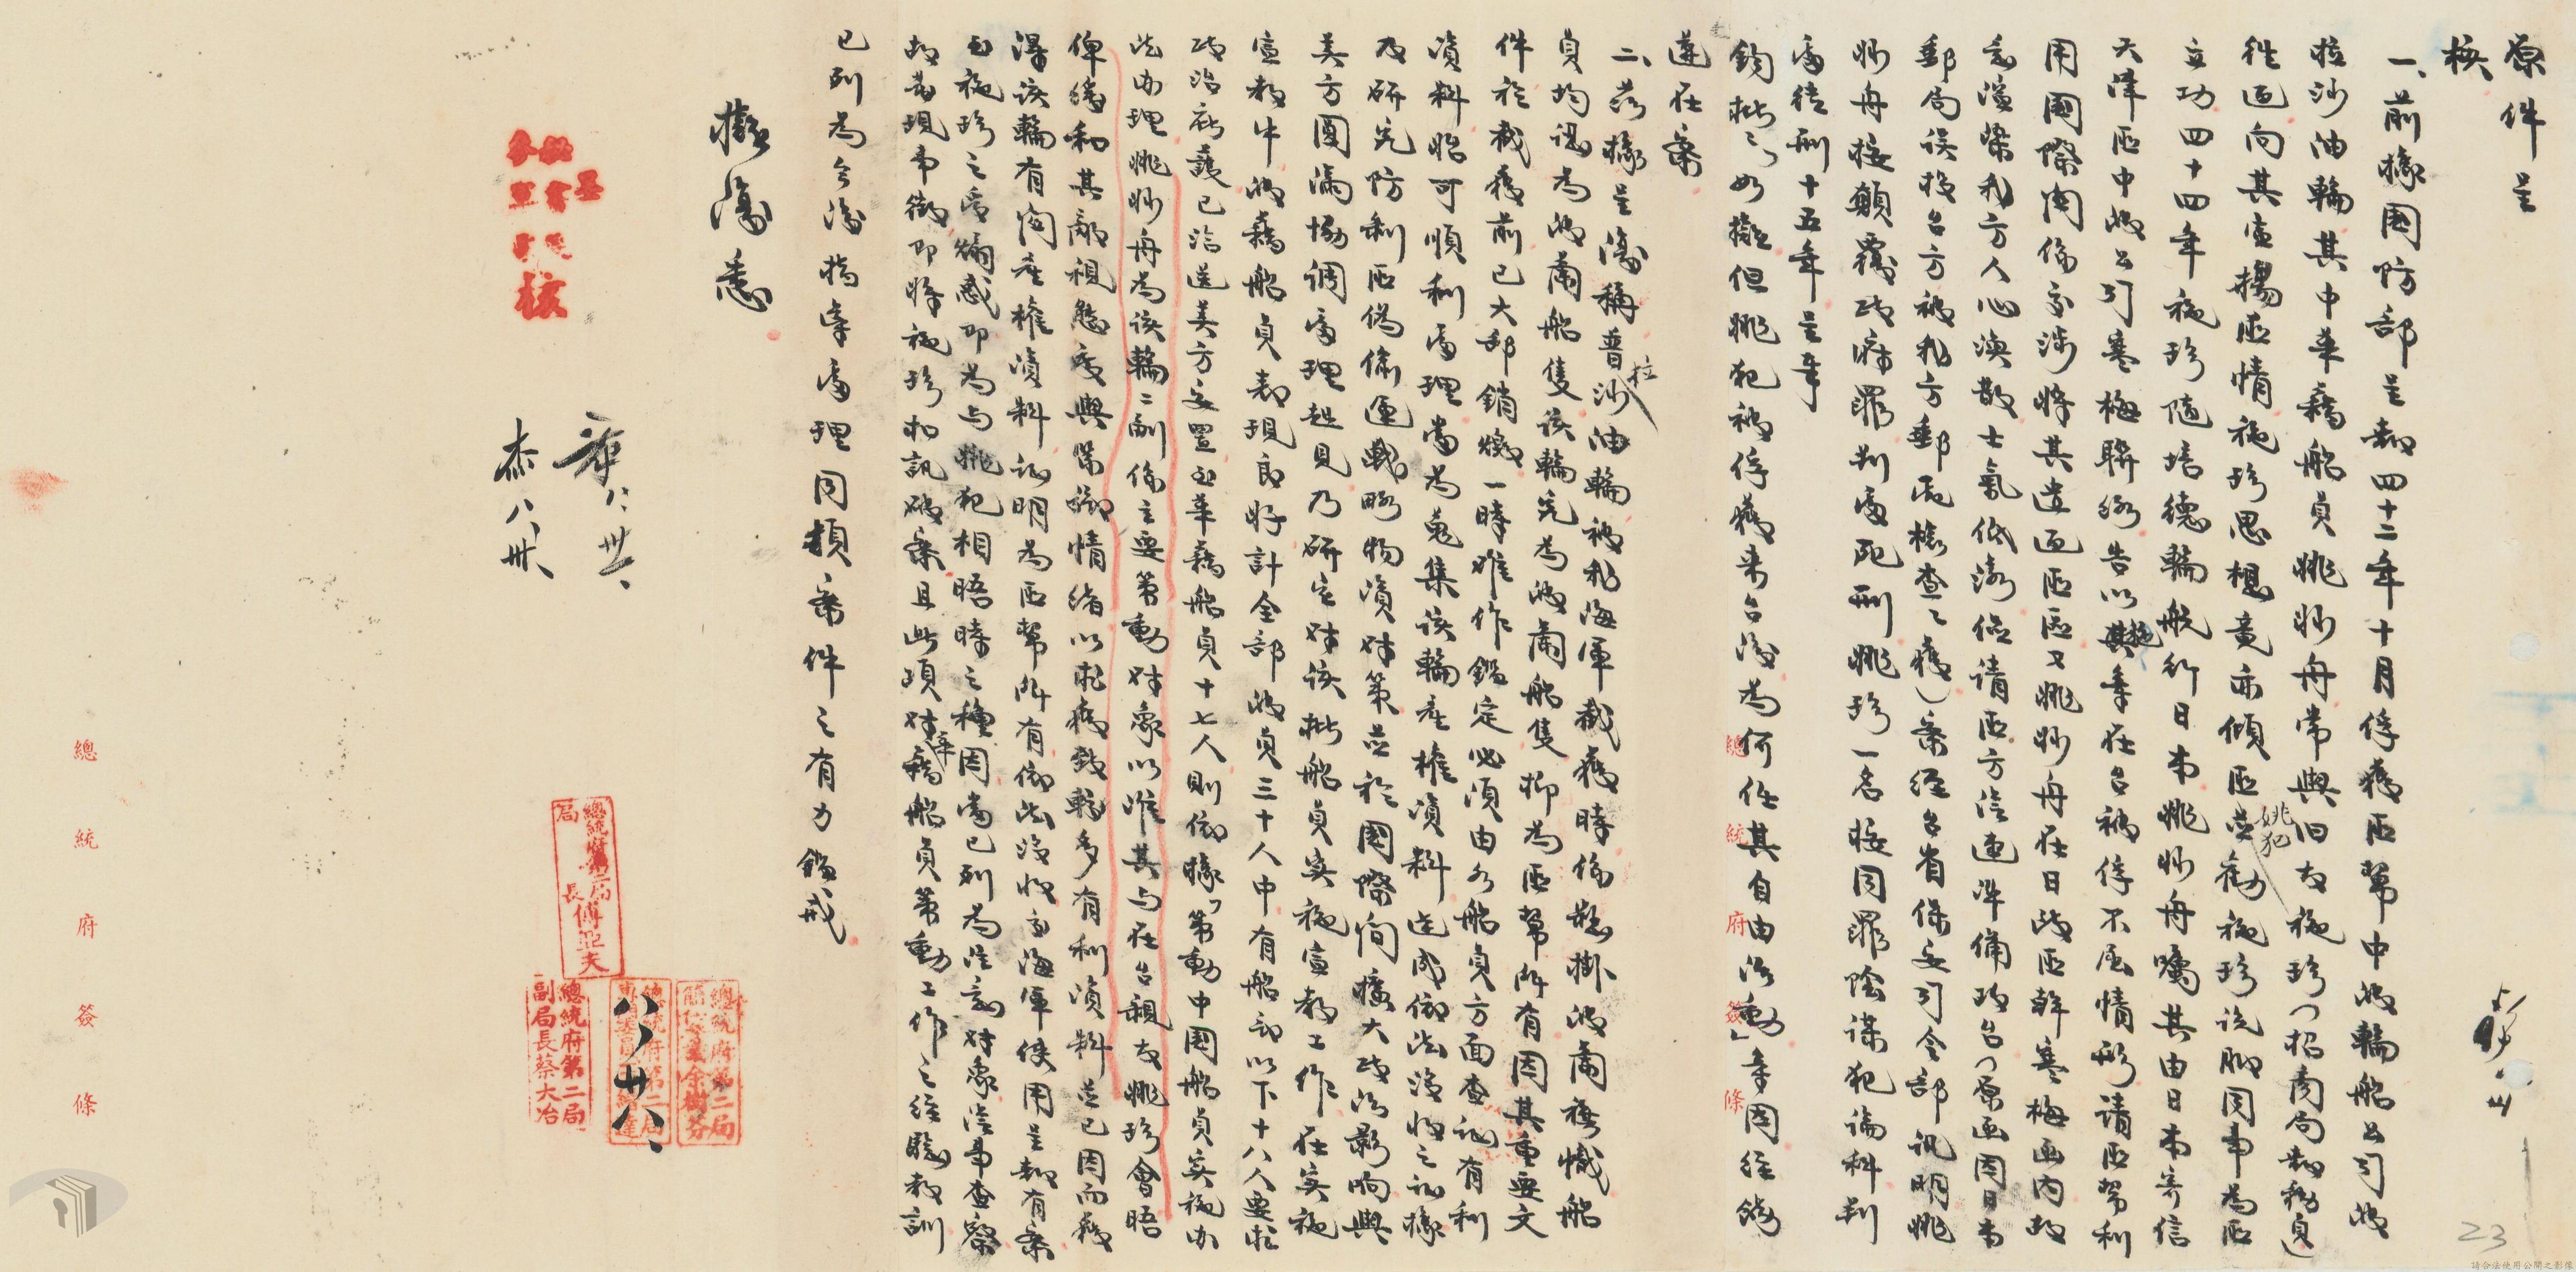 原件呈
核
一、前據國防部呈報四十二年十月俘獲匪幫中波輪船公司波
拉沙油輪其中華籍船員姚妙舟常與旧友施珍（招商局報務員）
往返向其宣揚匪情施珍思想竟亦傾匪姚犯並勸施珍設用同事為匪
立功四十四年施珍隨培德輪航行日本姚妙舟囑其由日本寄信
天津匪中波公司寒梅聯絡告以姚等在台被俘不屈情形請匪幫利
用國際關係交涉將其遣返匪區又姚妙舟在日致匪幹寒梅函內故
意渲染我方人心渙散士氣低落併請匪方從速準備攻台（原函因日本
郵局誤投台方被我方郵電檢查所獲）案經台省保安司令部訊明姚
妙舟按顛覆政府罪判處死刑姚珍一名按同罪陰謀犯論科判
處徒刑十五年呈奉
鈞批「如擬但姚犯被俘獲來台後為何任其自由活動」等因經飭
遵在案
二、茲據呈復稱普拉沙油輪被我海軍截獲時係懸掛波蘭旗幟船
員均認為波蘭船隻該輪究為波蘭船隻抑為匪幫所有因其重要文
件於截獲前已大部銷燬一時難作鑑定必須由各船員方面查証有利
資料始可順利處理當為蒐集該輪產權資料達成依法沒收之証據
及研究防制匪偽偷運戰略物資對策並於國際間擴大政治影响與
美方圓滿協調處理起見乃研定對該批船員实施宣教工作在实施
宣教中波籍船員表現良好計全部波員三十人中有船副以下十八人要求
政治庇護已洽送美方安置至華籍船員十七人則依據「策動中國船員实施办
法办理姚妙舟為該輪二副係主要策動对象以准其与在台親友姚珍會晤
俾緩和其敵視態度與策動情緒以求獲致較多有利資料並已因而獲
得該輪有關產權資料証明為匪幫所有依法沒收交海軍使用呈報有案
至施珍之受煽惑即為与姚犯相晤時之種因當已列為注意对象從事查察
故著現事徵即將施珍扣訊破案且此項对華籍船員策動工作之經驗教訓
已列為今後指導處理同類案件之有力鑑戒
擬復悉
秘書長
參軍長
核
彥 八、卅、
杰 八、卅、
總統府第二局局長傅亞夫
總統府第二局副局長蔡大冶
八、廿八、
總統府簽條
總統府簽條
23
請合法使用公開之影像